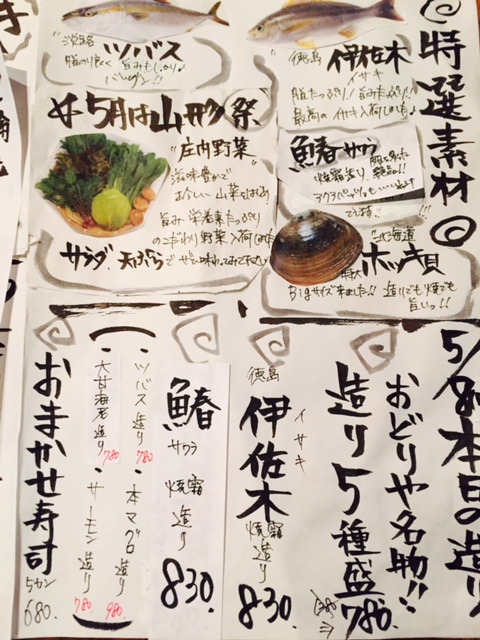 ◎特選素材◎
徳島
伊佐木
イサキ
脂たっぷり!旨みたっぷり!
最高のイサキ入荷しました♪
鰆 サワラ
焼霜造り
北海道
特大
ホッキ貝
Bigサイズ来ました!!造りでも焼でも
旨いっ!!
淡路島
ツバス
脂のり良く旨みもしっかり♪
バツグン!!
5月は山形祭
"庄内野菜"
滋味豊かで
旨み、栄養素たっぷり
のこだわり野菜入荷しました
サラダ、天ぷらでぜひ味わってみて下さい
5/8 本日の造り
おどりや名物!!
造り5種盛
780.
徳島
伊佐木
イサキ
焼霜造り
830.
鰆
サワラ
焼霜造り
830.
・ツバス造り 780
・本マグロ造り 980
・大甘海老造り 780
・サーモン造り 780
おまかせ寿司
5カン
680.